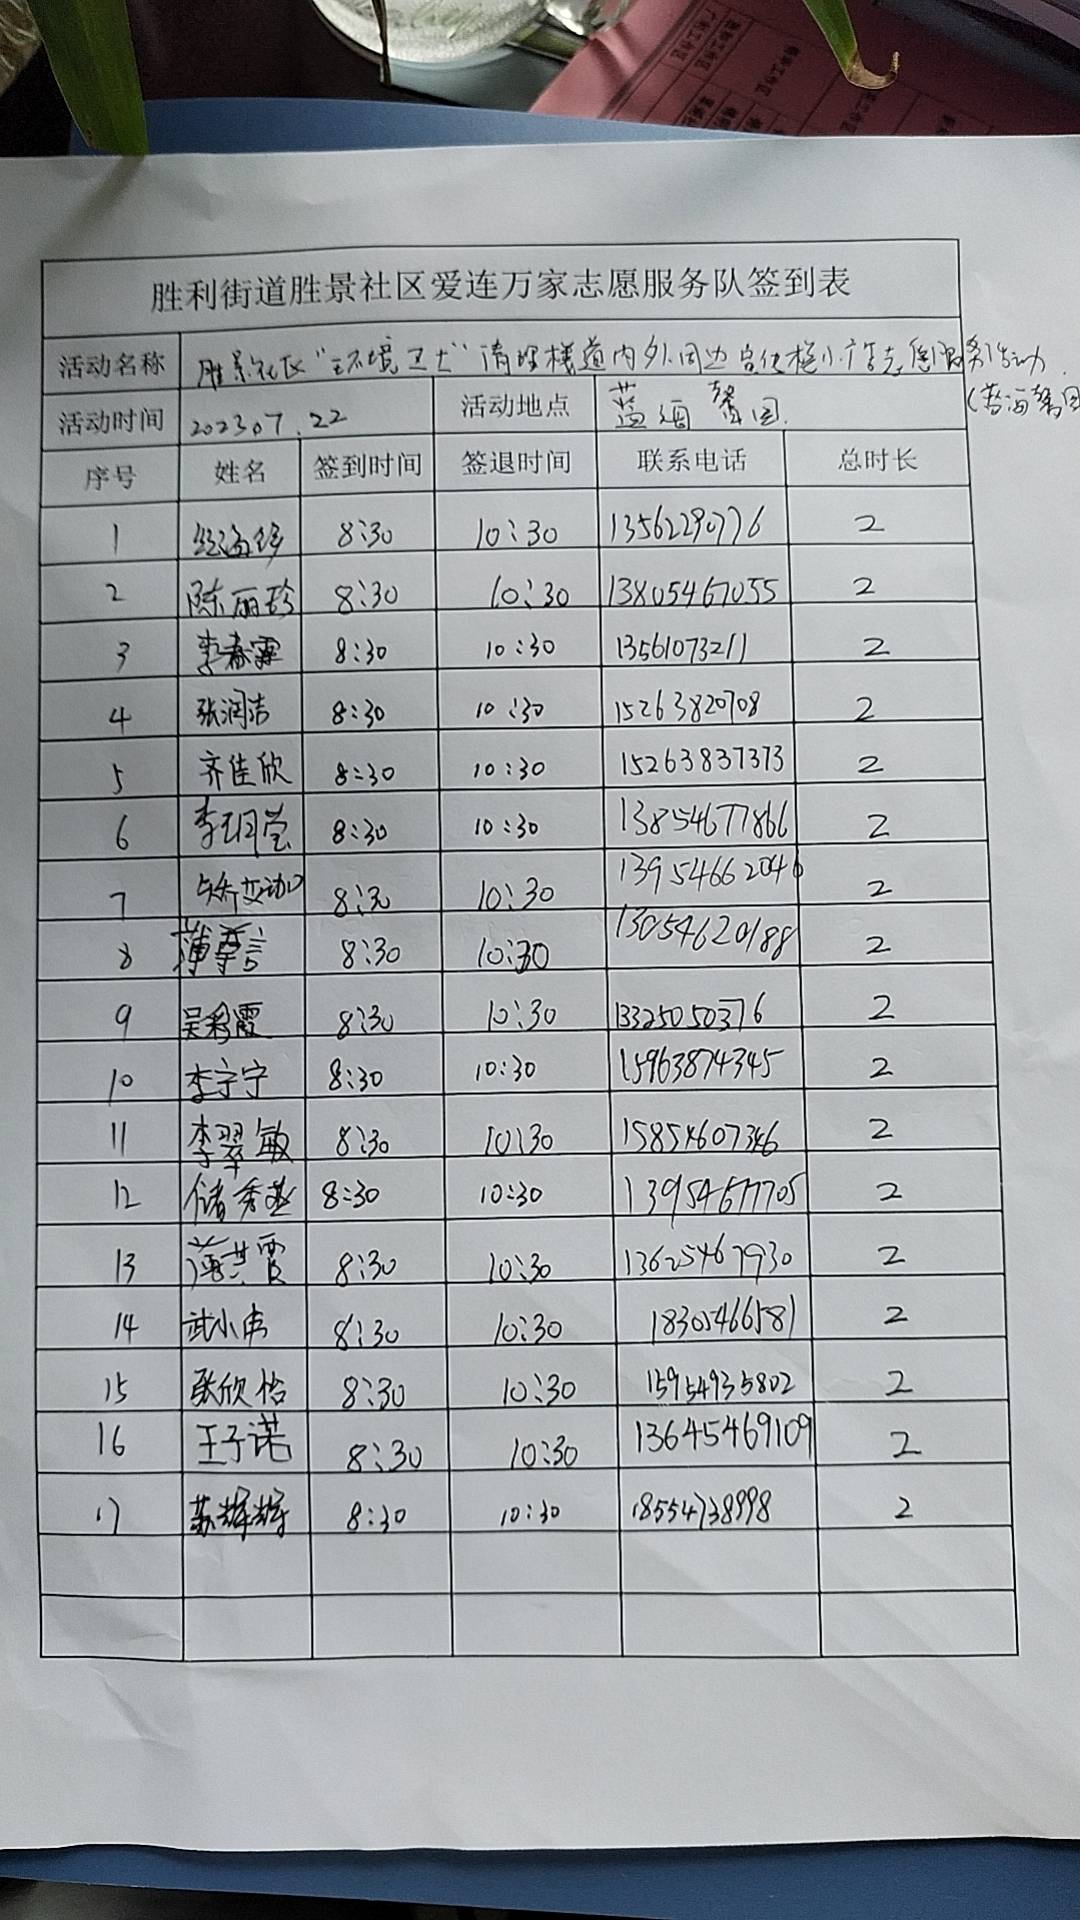 胜利街道胜景社区爱连万家志愿服务队签到表
活动名称 胜景社区"环境卫士"清理楼道内外周边宣传栏小广告志愿服务活动
(蓝海馨园
活动时间 2023.07.22 活动地点 蓝海馨园
序号 姓名 签到时间 签退时间 联系电话 总时长
1 8:30 10:30 13562290776 2
2 陈丽珍 8:30 10:30 13805467055 2
3 李春霖 8:30 10:30 13561073211 2
4 张润洁 8:30 10:30 15263820708 2
5 齐佳欣 8:30 10:30 15263837373 2
6 李玥莹 8:30 10:30 13854677866 2
7 8:30 10:30 13954662046 2
8 8:30 10:30 13054620188 2
9 吴秀霞 8:30 10:30 13325050376 2
10 李宁宁 8:30 10:30 15963874345 2
11 李翠敏 8:30 10:30 15854607346 2
12 储秀燕 8:30 10:30 13954677705 2
13 8:30 10:30 13625467930 2
14 武小伟 8:30 10:30 18305466581 2
15 张欣怡 8:30 10:30 15954935802 2
16 王子诺 8:30 10:30 13645469109 2
17 苏辉辉 8:30 10:30 18554738998 2